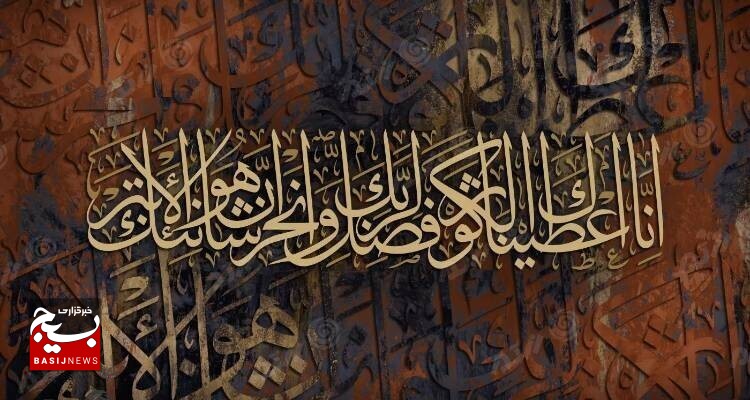 انا اعطیناك الكوثر فصل لربك وانحر ان شانئك هو الأبتر
خبرگزاری
بسیج
BASIJNEWS